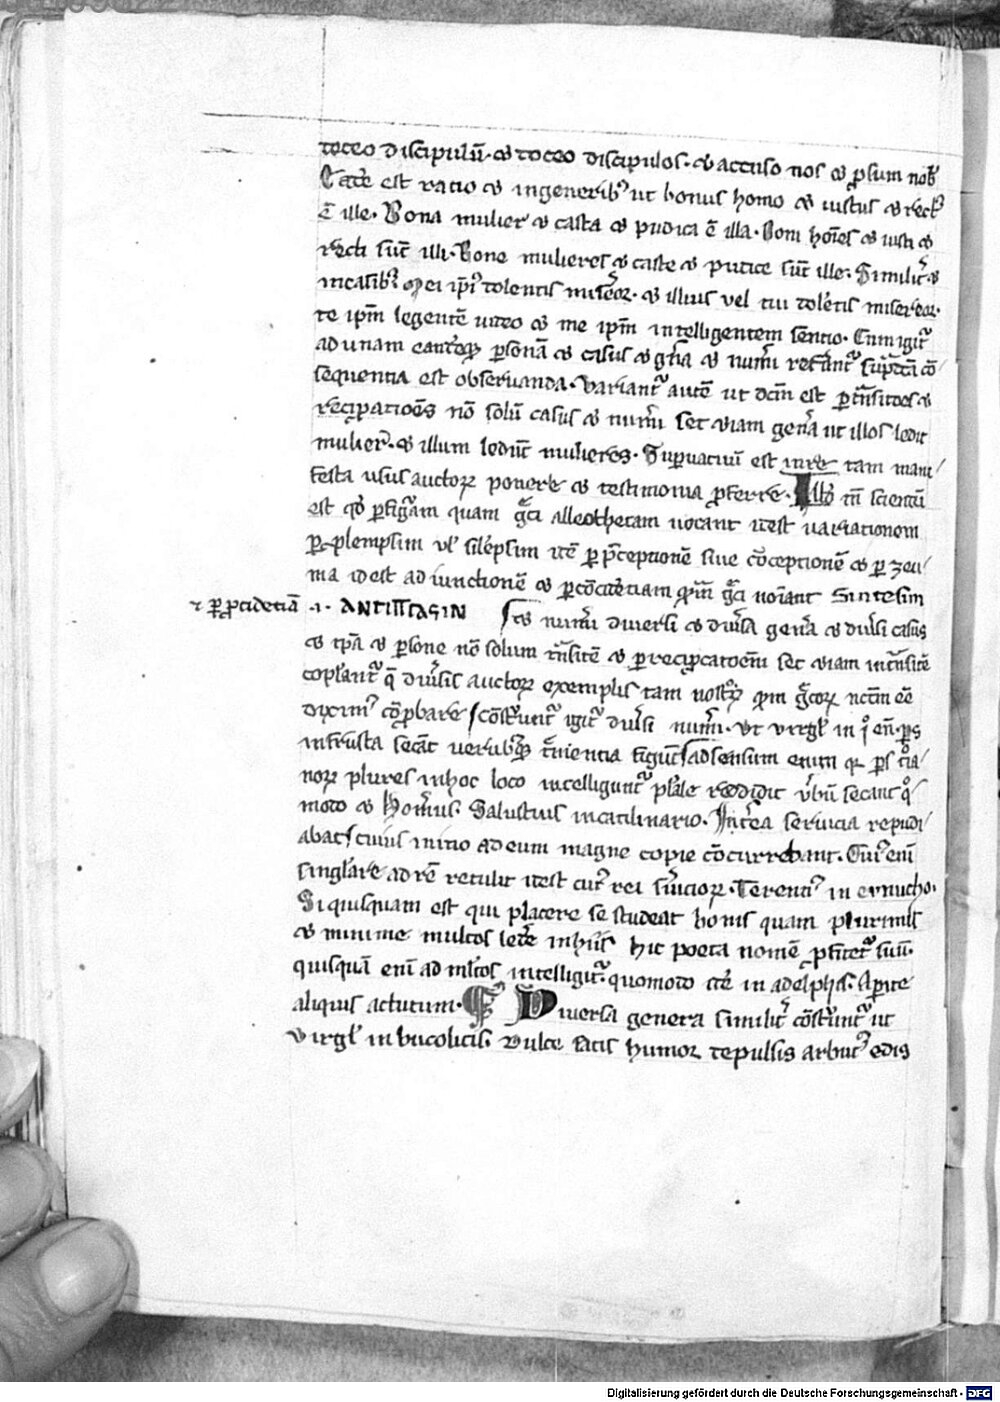 doceo discipulū. ⁊ doceo discipulos. ⁊ accuso nos ⁊ ꝓsum nob᷒
Eadē est ratio ⁊ in generib᷒ ut bonus homo ⁊ iustus ⁊ rect᷒
ē ille. Bona mulier ⁊ casta ⁊ pudica ē illa. Boni hoīes ⁊ iusti ⁊
recti sūt illi. Bone mulieres ⁊ caste ⁊ pudice sūt ille. Similit̄ ⁊
in casib᷒. Mei ip̄i᷒ dolentis miseꝛeoꝛ. ⁊ illius vel tui dolētis misereoꝛ.
te ip̄m legentē uideo ⁊ me ip̄m intelligentem sentio. Cum igit᷑
ad unam eandēꝗ ꝑsonā ⁊ casus ⁊ gn̄a ⁊ num̄i referant᷑ sup̄dc̄ā cō
sequentia est obseruanda. Variant᷑ autē ut dc̄m est ꝑ tn̄sitōes ⁊
reciꝓcatiōes nō solū casus ⁊ num̄i sed etiam gen̄a ut illos ledit
mulier. ⁊ illum ledūt mulieres. Supuacuū est in re tam mani
festa usus auctoꝝ ponere ⁊ testimonia ꝓferre. Illud tn̄ sciendū
est qd̓ ꝑ figuram quam greci alleothetam uocant idest uariationem
ꝑ ꝓlempsim ul̓ silepsim idē ꝑ p̄ceptionē siue cōceptionē ⁊ ꝑ zeu
ma idest adiunctionē ⁊ ꝑ cōcidētiam quam greci noīant Sintesim
⁊ ꝑ ꝓcidētiā .i. ANTIPTOSIN sed ⁊ num̄i diuersi ⁊ diūsa gen̄a ⁊ diūsi casus
⁊ tp̄a ⁊ ꝑsone nō solum tn̄sitē ⁊ ꝑ reciꝓcatōem sed etiam intn̄sitē
copulant᷑ q̄ diūsis auctoꝝ exemplis tam nostroꝝ quam grecoꝝ notum ee
dixim᷒ cōꝓbare. Cōstruunt᷑ igit᷑ diūsi num̄i. Vt virgl̓ in i en̄. Pars
in frusta secāt uerubꝗ t̄mentia figūt. Ad sensum enim q̄ pars t̓oia
noꝝ plures in hoc loco intelligunt᷑ plurale reddidit ūbū secant quo
modo ⁊ hom̄us. Salustius in catilinario. Interea seruicia repudi
abat cuius initio ad eum magne copie cōcurrebant. Cui᷒ enī
singlare ad rē retulit idest cui᷒ rei seruicioꝝ. Terenti᷒ in eunucho.
Si quisquam est qui placere se studeat bonis quam plurimis
⁊ minime multos ledere in hiis hic poeta nomē ꝓfitet᷑ suū.
quisquā enī ad multos intelligit᷑. quomodo etiā in adelphis. Aperite
aliquis actutum. ¶ Diuersa genera similit̄ cōstruunt᷑ ut
Virgl̓ in bucolicis. Dulce satis humor depulsis arbut᷒ edis
Digitalisierung gefördert durch die Deutsche Forschungsgemeinschaft - DFG